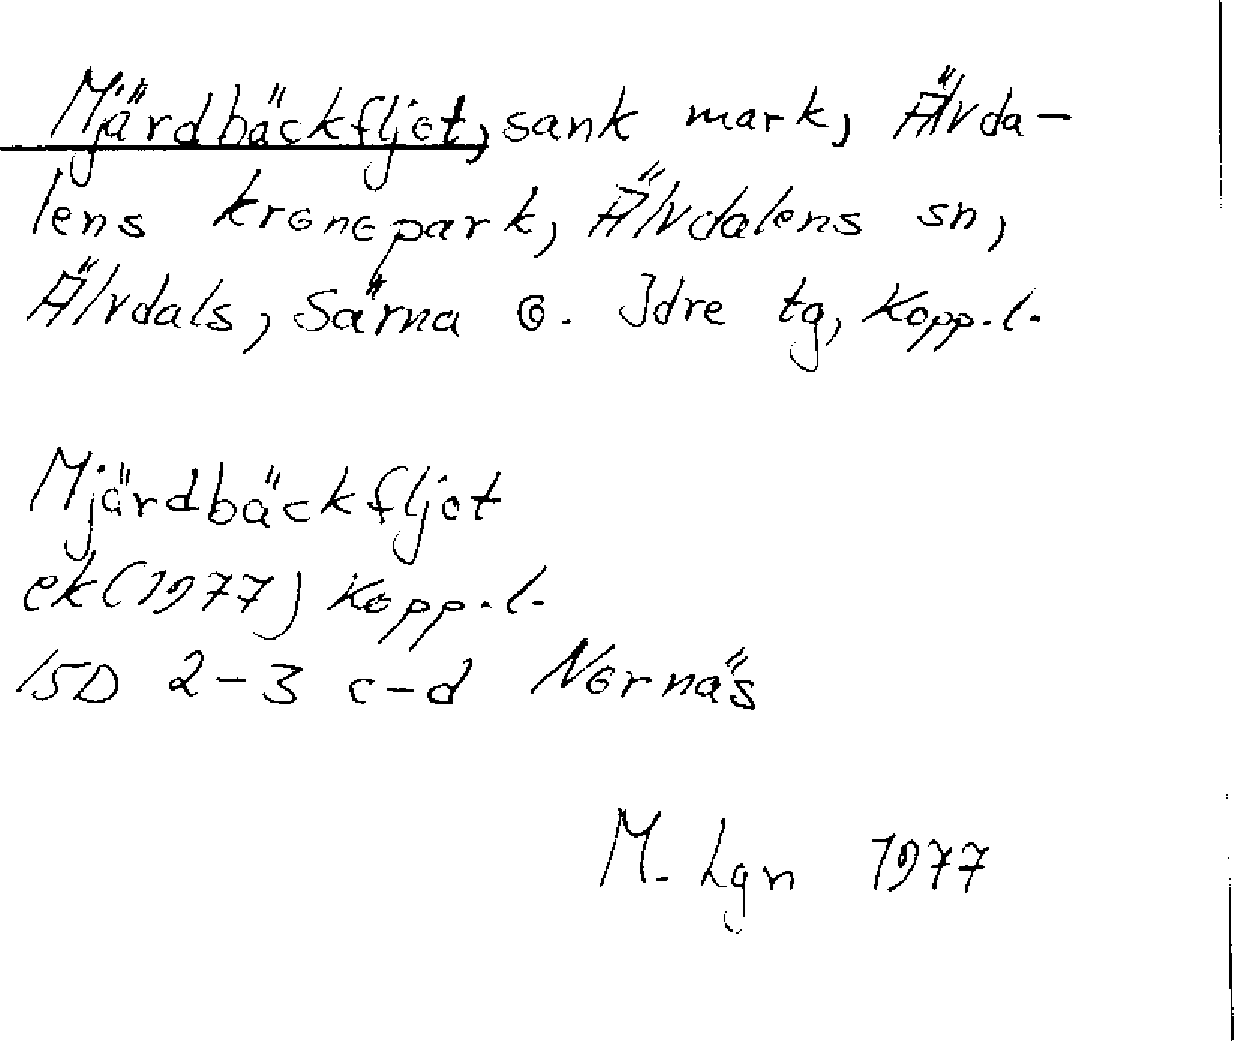 Mjärdbäckfljot, sank mark, Älvda-
lens kronopark, Älvdalens sn,
Älvdals, Särna o. Idre tg, Kopp. l.
Mjärdbäckfljot
ek (1977) Kopp. l.
15D 2-3 c-d Nornäs
M. Lgn 1977